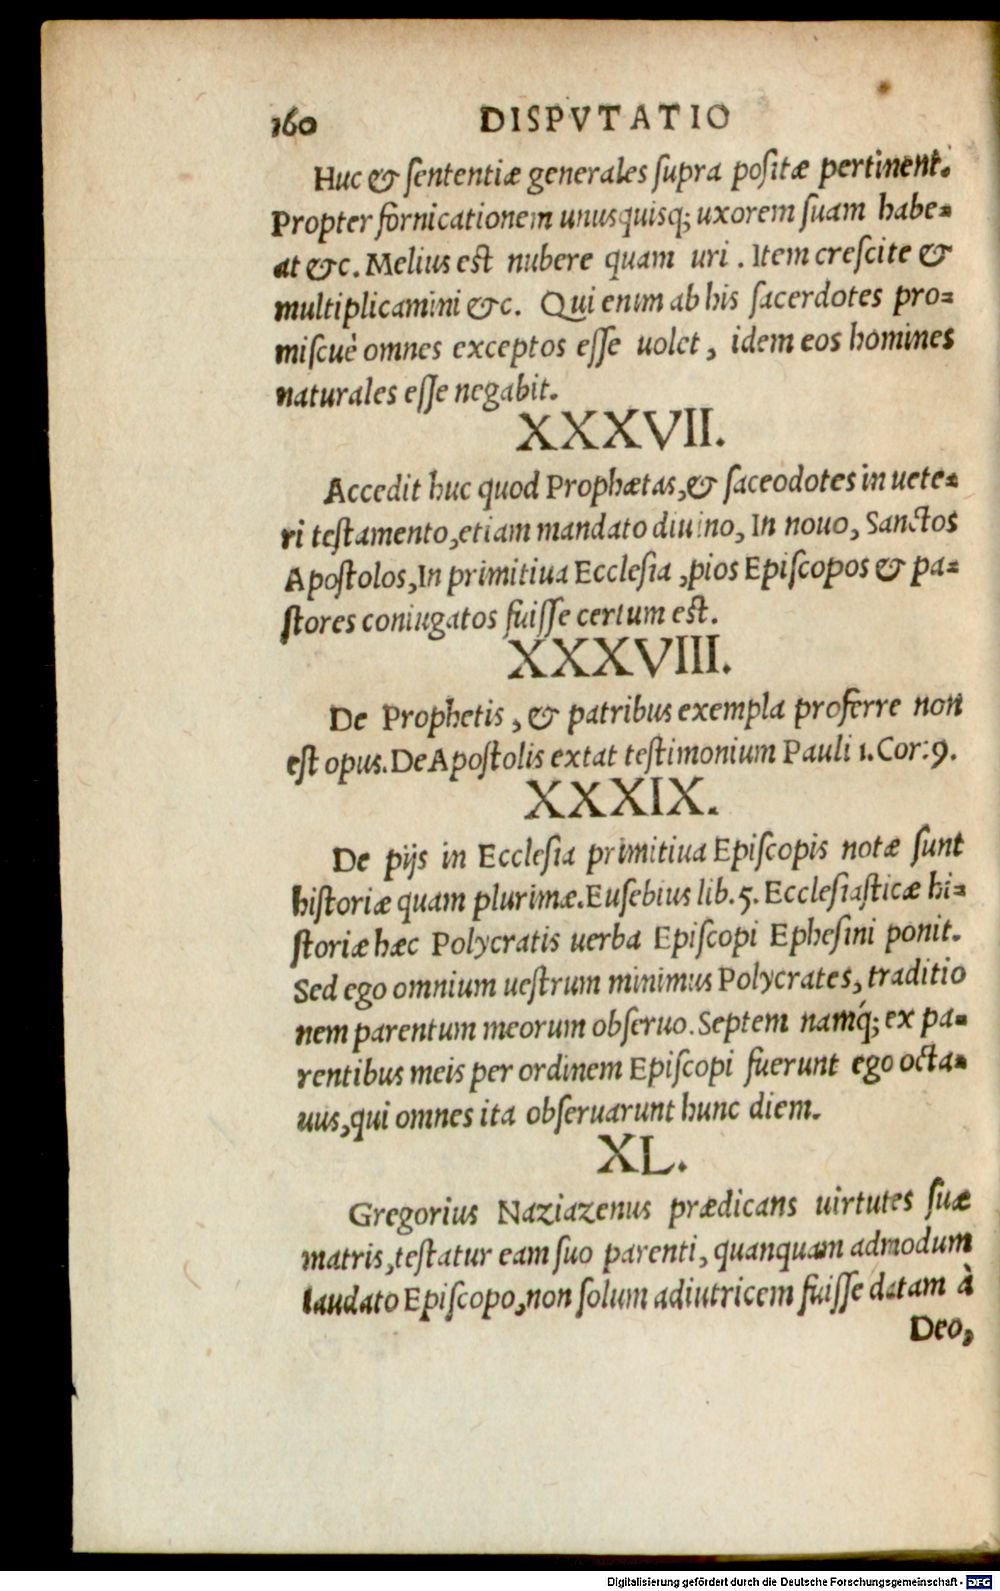 160 DISPVTATIO
Huc & sententiæ generales supra positæ pertinent.
Propter fornicationem unusquisq; uxorem suam habe=
at &c. Melius est nubere quam uri. Item crescite &
multiplicamini &c. Qui enim ab his sacerdotes pro=
miscuè omnes exceptos esse uolet, idem eos homines
naturales esse negabit.
XXXVII.
Accedit huc quod Prophætas, & saceodotes in uete=
ri testamento, etiam mandato diuino, In nouo, Sanctos
Apostolos, In primitiua Ecclesia, pios Episcopos & pa=
stores coniugatos fuisse certum est.
XXXVIII.
De Prophetis, & patribus exempla proferre non
est opus. De Apostolis extat testimonium Pauli 1. Cor: 9.
XXXIX.
De pijs in Ecclesia primitiua Episcopis notæ sunt
historiæ quam plurimæ. Eusebius lib. 5. Ecclesiasticæ hi=
storiæ hæc Polycratis uerba Episcopi Ephesini ponit.
Sed ego omnium uestrum minimus Polycrates, traditio
nem parentum meorum obseruo. Septem namq́; ex pa=
rentibus meis per ordinem Episcopi fuerunt ego octa=
uus, qui omnes ita obseruarunt hunc diem.
XL.
Gregorius Naziazenus prædicans uirtutes suæ
matris, testatur eam suo parenti, quanquam admodum
laudato Episcopo, non solum adiutricem fuisse datam à
Deo,
Digitalisierung gefördert durch die Deutsche Forschungsgemeinschaft - DFG